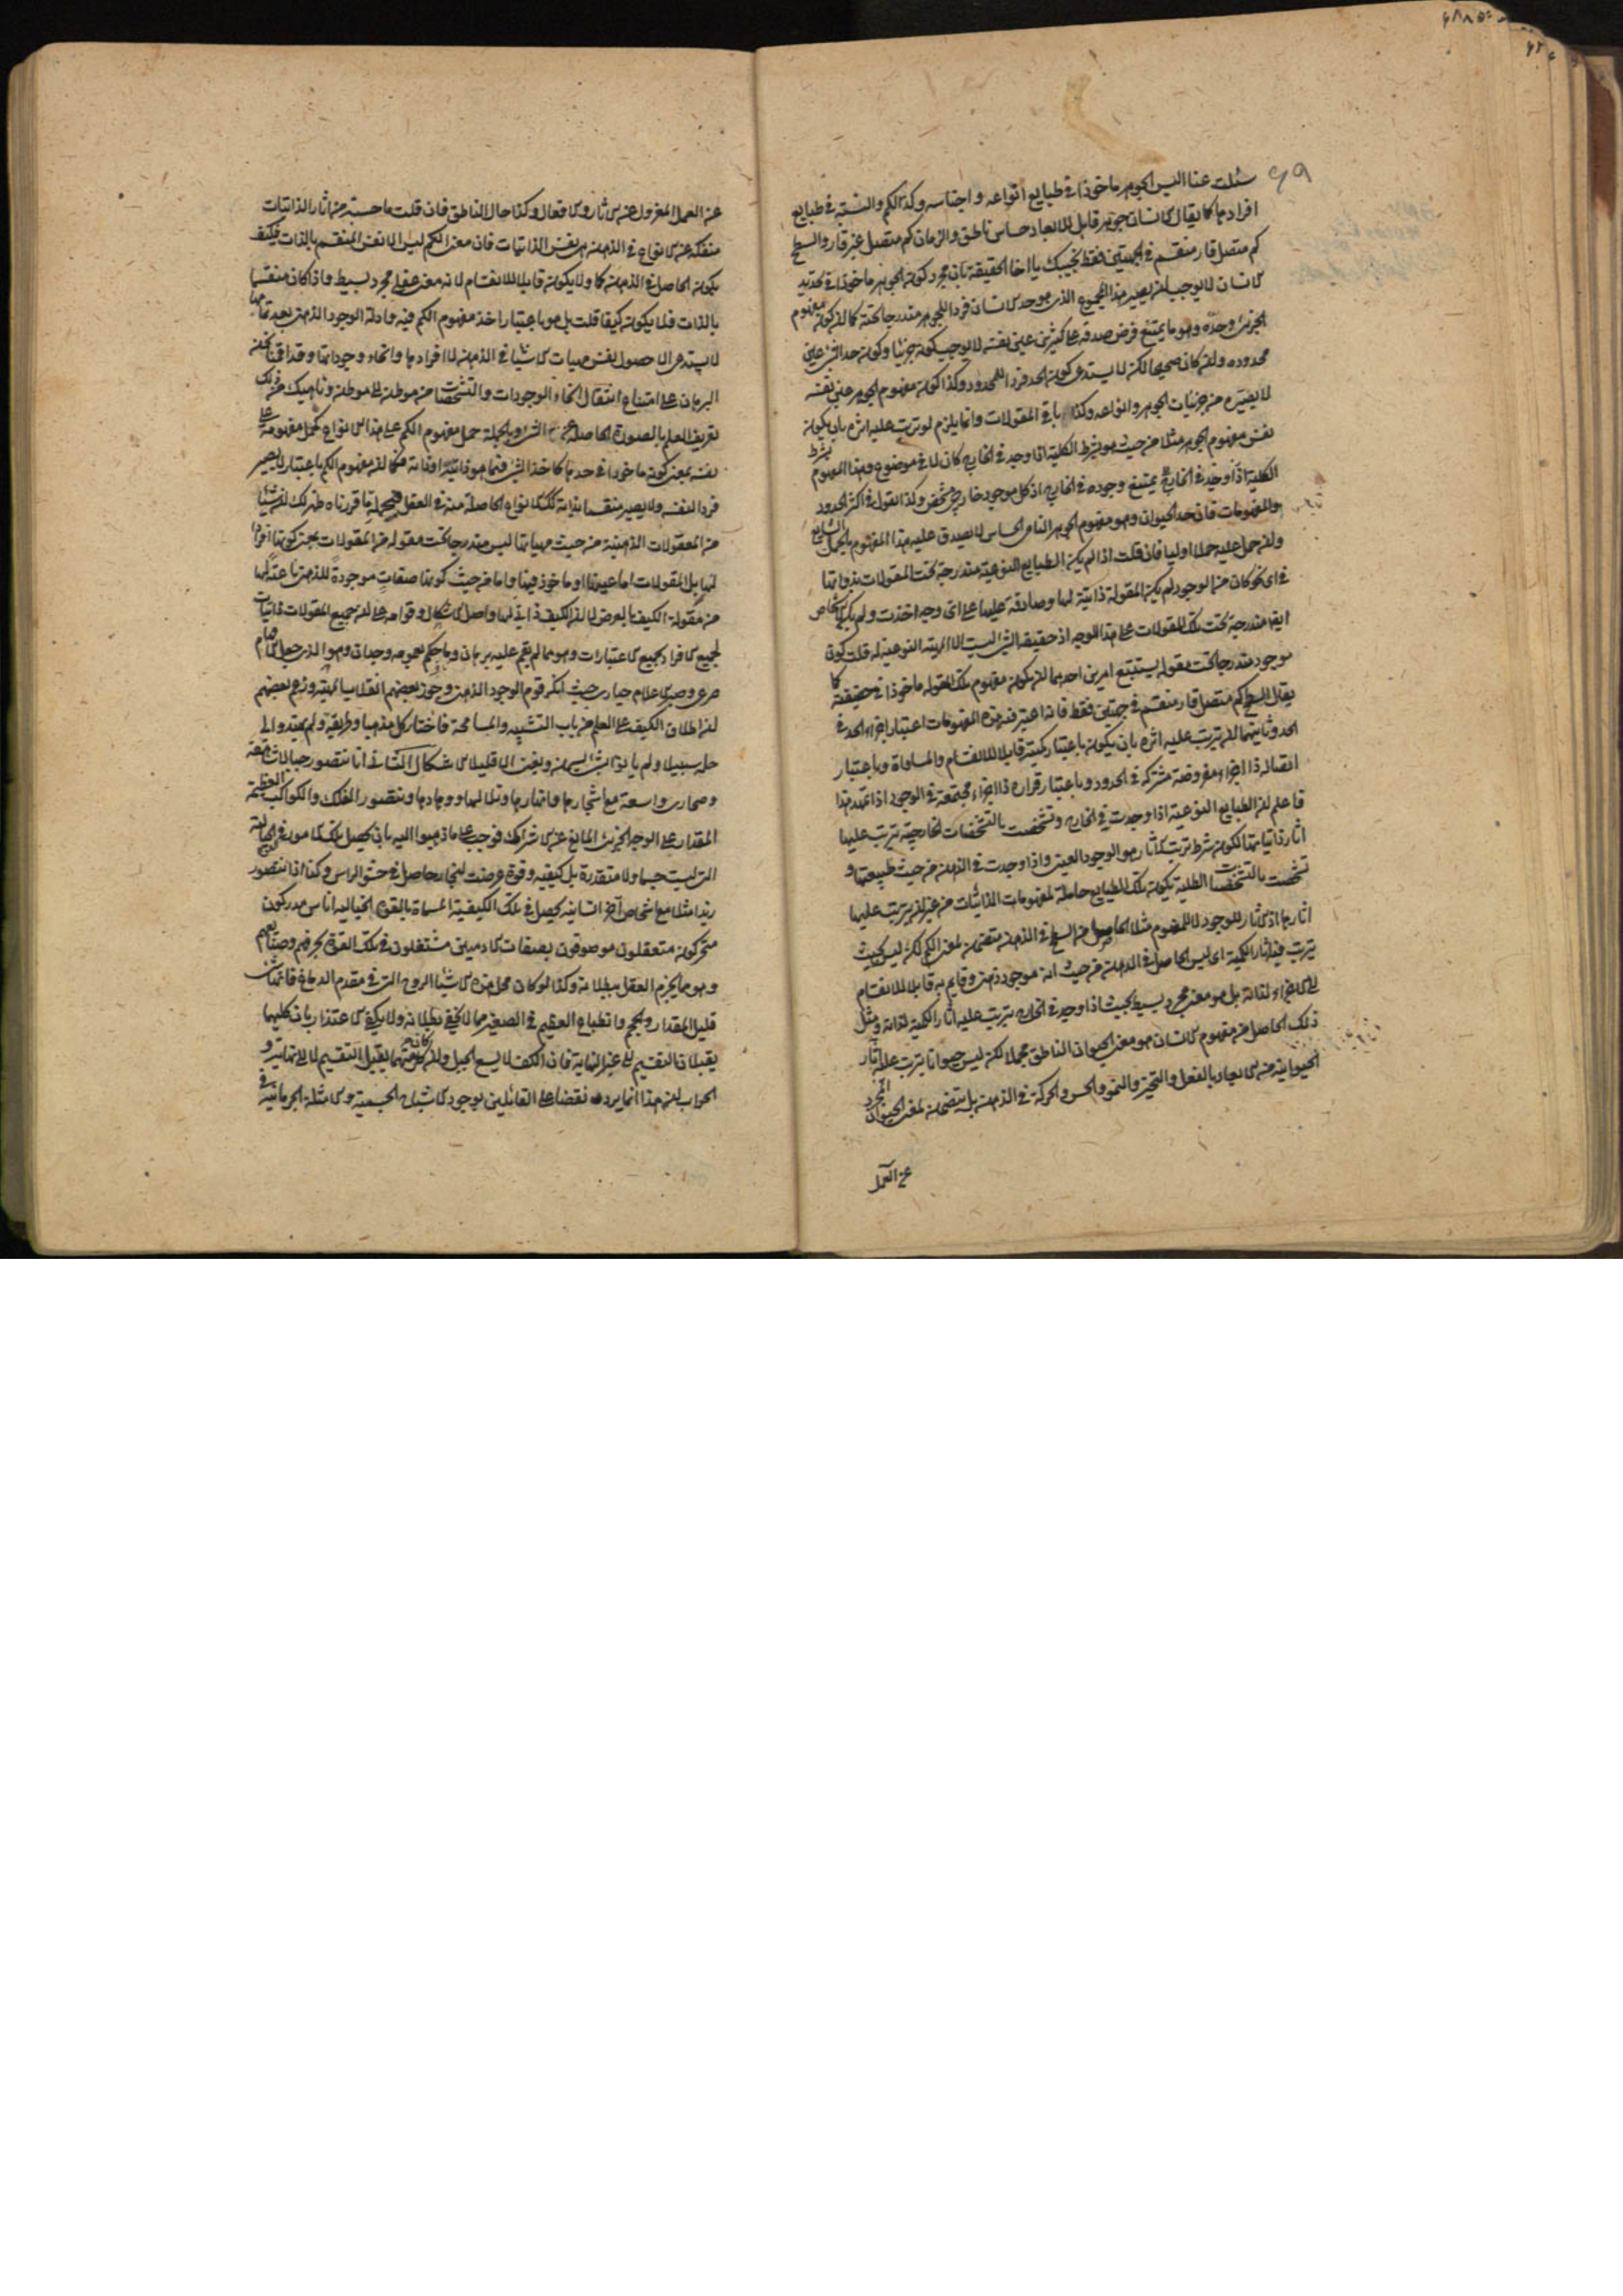 سئلت عنا اليس الجوهر ماخوذا في طبايع انواعه واجناسه وكذا الكم والنسبة في طبايع
افرادها كما يقال الانسان جوهر قابل للابعاد حساس ناطق والزمان كم متصل غير قار والسطح
كم متصل قار منقسم في الجهتين فقط نجيبك يا اخا الحقيقة بان مجرد كون الجوهر ماخوذا في تحديد
الانسان لا يوجب ان يصير هذا المجموع الذي هو حد الانسان فردا للجوهر مندرجا تحته كما ان كون مفهوم
الجزئي وحده وهو ما يمتنع فرض صدقه على كثيرين عين نفسه لا يوجب كونه جزئيا وكون حد الشئ عين
محدوده وان كان صحيحا لكن لا يستدعي كون الحد فردا للمحدود وكذا كون مفهوم الجوهر عين نفسه
لا يصيره من جزئيات الجوهر وانواعه وكذا باقي المقولات وانما يلزم لو ترتب عليه اثره بان يكون
نفس مفهوم الجوهر مثلا من حيث هو بشرط الكلية اذا وجد في الخارج كان لا في موضوع وهذا المفهوم بشرط
الكلية اذا وجد في الخارج يمتنع وجوده في الخارج اذ كل موجود خارجي مشخص وكذا القول في اكثر الحدود
والمفهومات فان حد الحيوان وهو مفهوم الجوهر النامي الحساس لا يصدق عليه هذا المفهوم بالحمل الشايع
وان حمل عليه حملا اوليا فان قلت اذا لم يكن الطبايع النوعية مندرجة تحت المقولات بذواتها
في اي نحو كان من الوجود لم يكن المقولة ذاتية لها وصادقة عليها على اي وجه اخذت ولم يكن الاشخاص
ايضا مندرجة تحت تلك المقولات على هذا الوجه اذ حقيقة الشئ ليست الا المهية النوعية له قلت كون
موجود مندرجا تحت مقولة يستتبع امرين احدهما ان يكون مفهوم تلك المقولة ماخوذا في حقيقته كما
يقال السطح كم متصل قار منقسم في جهتين فقط فانه اعتبر فيه هذه المفهومات اعتبار اجزاء الحد في
الحد وثانيهما ان يترتب عليه اثره بان يكون باعتبار كميته قابلا للانقسام والمساواة وباعتبار
اتصاله ذا اجزاء مفروضة مشتركة في الحدود وباعتبار قراره ذا اجزاء مجتمعة في الوجود اذا تمهد هذا
فاعلم ان الطبايع النوعية اذا وجدت في الخارج وتشخصت بالتشخصات الخارجية يترتب عليها
اثار ذاتياتها لكون شرط ترتب الاثار هو الوجود العيني واذا وجدت في الذهن من حيث طبيعتها و
تشخصت بالتشخصات الظلية يكون تلك الطبايع حاملة لمفهومات الذاتيات من غير ان يترتب عليها
اثارها اذ الاثار للوجود لا للمفهوم مثلا الحاصل من السطح في الذهن متضمن لمعنى الكم لكن ليس بحيث
يترتب فيه اثار الكمية اي ليس الحاصل في الذهن من حيث انه موجود ذهني وقايم به قابلا للانقسام
الى الاجزاء لذاته بل هو معنى مجرد بسيط بحيث اذا وجد في الخارج يترتب عليه اثار الكمية لذاته ومثل
ذلك الحاصل من مفهوم الانسان هو معنى الحيوان الناطق مجملا لكن ليس حيوانا يترتب عليه اثار
الحيوانية من الابعاد بالفعل والتحيز والنمو والحس والحركة في الذهن بل يتضمن لمعنى الحيوان المجرد
عن العمل
عن العمل المعزول عن الاثار والافعال وكذا حال الناطق فان قلت ما حسبته من اثار الذاتيات
منفكة عن الانواع في الذهن هي نفس الذاتيات فان معنى الكم ليس الا نفس المنقسم بالذات فكيف
يكون الحاصل في الذهن كما ولا يكون قابلا للانقسام لانه معنى عقلي مجرد بسيط واذا كان منقسما
بالذات فلا يكون كيفا قلت بل هو باعتبار اخذ مفهوم الكم فيه وادلة الوجود الذهني بعد تمامها
لا يستدعي الا حصول نفس مهيات الاشياء في الذهن لا افرادها وانحاء وجوداتها وقد اقمنا نحن
البرهان على امتناع انتقال انحاء الوجودات والتشخصات من موطن الى موطن وناهيك من ذلك
تعريف العلم بالصورة الحاصلة عن الشئ وبالجملة حمل مفهوم الكم على هذا الانواع كحمل مفهومه على
نفسه بمعنى كونه ماخوذا في حدها كاخذ الشئ فيما هو ذاتيه او ذاته فكما ان مفهوم الكم باعتبار لا يصير
فردا لنفسه ولا يصير منقسما بذاته كذلك الانواع الحاصلة منه في العقل فبجملة ما قررناه ظهر لك ان شيئا
من المعقولات الذهنية من حيث مهياتها ليس مندرجا تحت مقولة من المقولات بمعنى كونها افرادا
لها بل المقولات اما عينها او ماخوذ فيها واما من حيث كونها صفات موجودة للذهن ناعتة لها
من مقولة الكيف بالعرض لا ان الكيف ذاتي لها واصل الاشكال وقوامه على ان جميع المقولات ذاتيات
لجميع الافراد بجميع الاعتبارات وهو مما لم يقم عليه برهان وما حكم بعمومه وجدان وهو الذي جعل الافهام
صرعى وصير الاعلام حيارى حيث انكر قوم الوجود الذهني وجوز بعضهم انقلاب المهية وزعم بعضهم
ان اطلاق الكيف على العلم من باب التشبيه والمسامحة فاختار كل مذهبا وطريقة ولم يهتدوا الى
حله سبيلا ولم يا الا قليلا الاشكال الثاني انا نتصور جبالا شاهقة
وصحاري واسعة مع اشجارها وانهارها وتلالها ووهادها ونتصور الفلك والكواكب العظيمة
المقدار على الوجه الجزئي المانع عن الاشتراك فوجب على ما ذهبوا اليه بان يحصل تلك الامور في الخيالية
التي ليست جسما ولا متقدرة بل كيفية وقوة عرضت لبخار حاصل في حشو الراس وكذا اذا نتصور
زيدا مثلا مع اشخاص اخر انسانية يحصل في تلك الكيفية المسماة بالقوة الخيالية اناس مدركون
متحركون متعقلون موصوفون بصفات الادميين مشتغلون في تلك القوة بحرفهم وصنايعهم
وهو مما يجزم العقل ببطلانه وكذا لو كان محل هذه الاشياء الروح التي في مقدم الدماغ فانها شئ
قليل المقدار والحجم وانطباع العظيم في الصغير مما لا يخفى بطلانه ولا يكفي الاعتذار بان كليهما
يقبلان التقسيم الى غير النهاية فان الكف لا يسع الجبل وان كان كل منهما يقبل التقسيم لا الى نهاية و
الجواب ان هذا انما يرد نقضا على القائلين بوجود الاشباح الجسمية والامثلة الجرمانية في